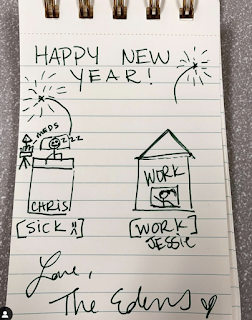 HAPPY NEW
YEAR!
MEDS
ZZZ
CHRIS
[SICK
WORK
[WORK]
JESSIE
Love,
The Edens